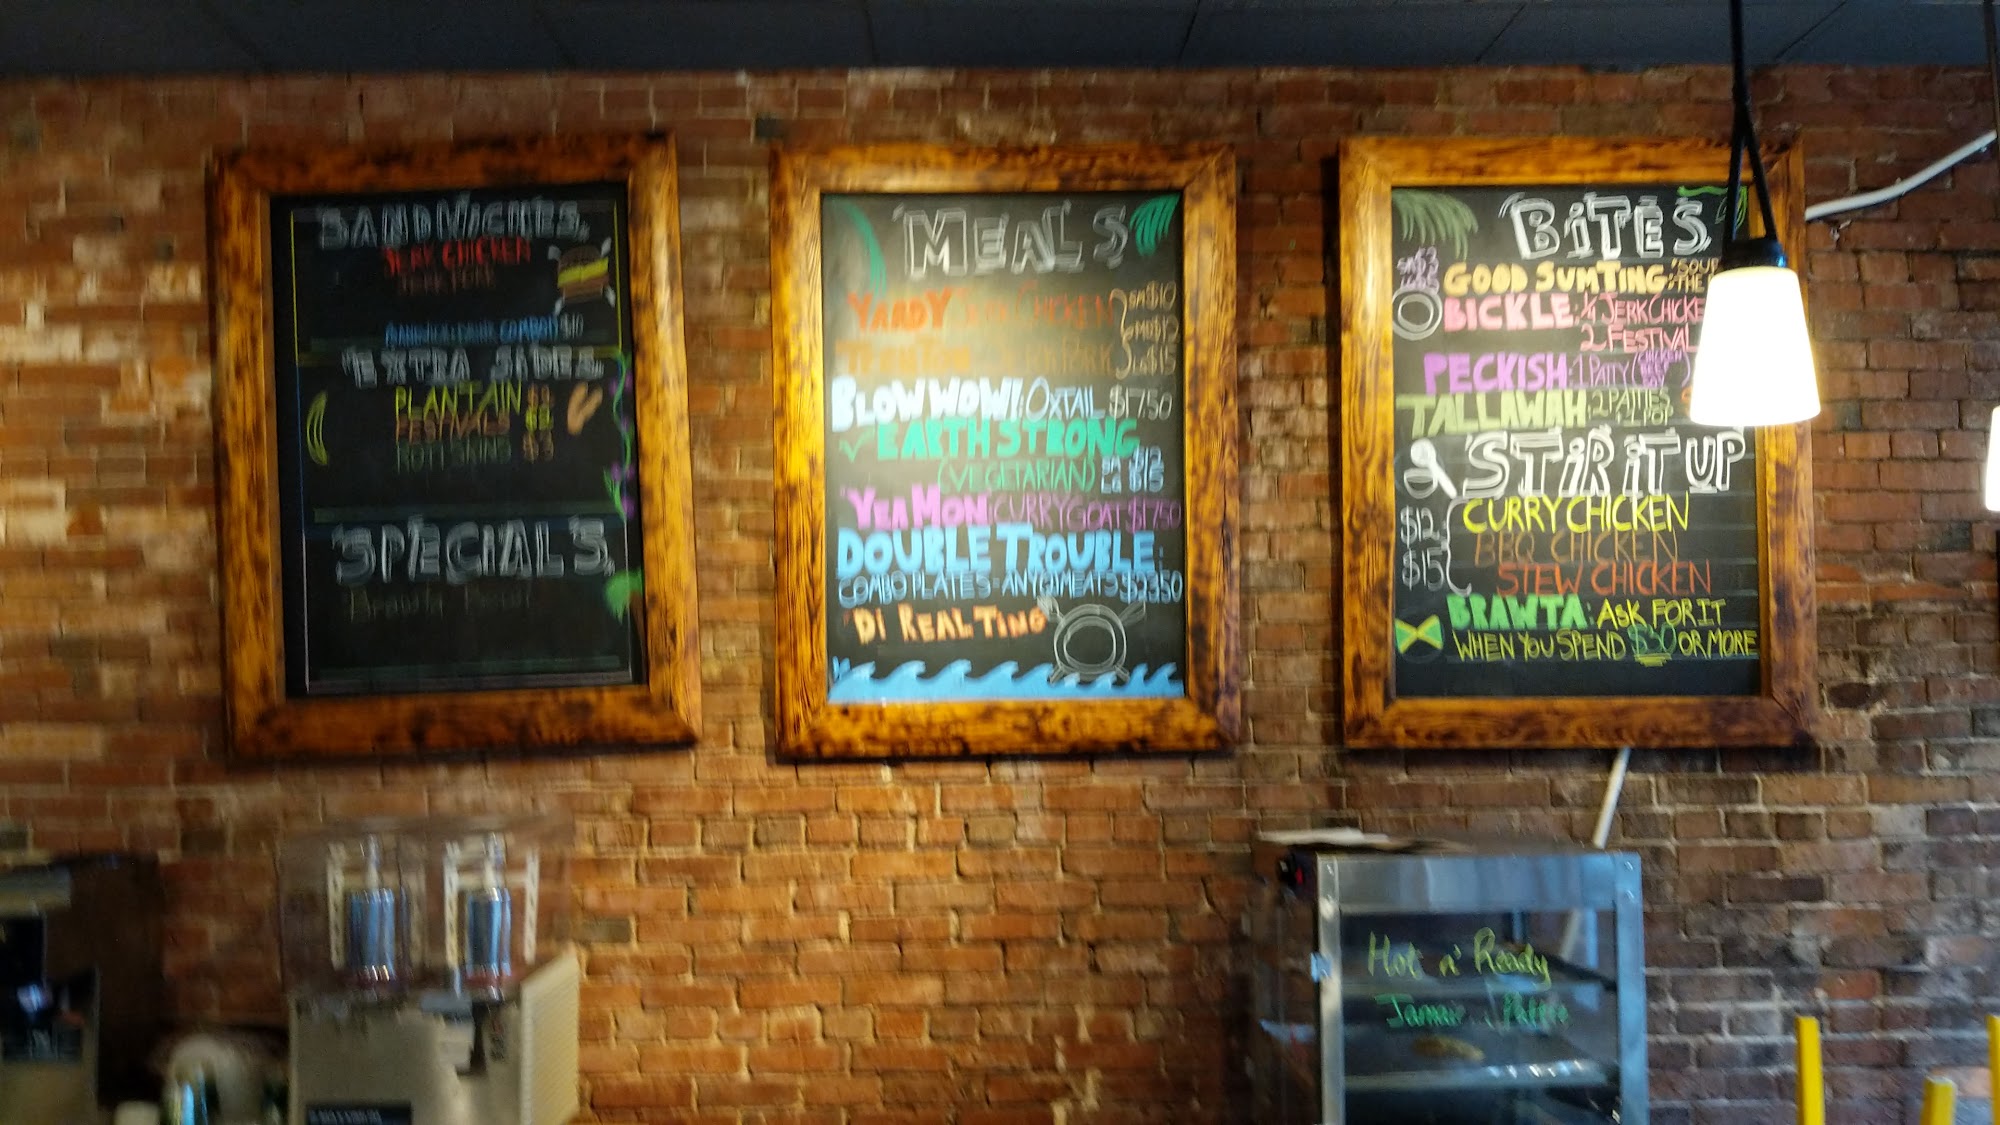 SANDWICHES
JERK CHICKEN
JERK PORK
$10
EXTRA SIDES
PLANTAIN $3
FESTIVALS $2
ROTI SKINS $3
SPECIALS
MEALS
YARDY JERK CHICKEN SM $10
MD $12
JERK PORK LG $15
BLOW WOW!: OXTAIL $17.50
EARTH STRONG
(VEGETARIAN) SM $12
LG $15
YEA MON: CURRY GOAT $17.50
DOUBLE TROUBLE:
COMBO PLATES = ANY 2 MEATS $23.50
"DI REAL TING"
BITES
SM $3
GOOD SUMTING: SOUP
THE
BICKLE: 1/4 JERK CHICKE
2 FESTIVAL
PECKISH: 1 PATTY (CHICKEN
BEEF
SOY)
TALLAWAH: 2 PATTIES
+ 1 POP
STIR IT UP
CURRY CHICKEN
$12 BBQ CHICKEN
$15 STEW CHICKEN
BRAWTA: ASK FOR IT
WHEN YOU SPEND $30 OR MORE
Hot n' Ready